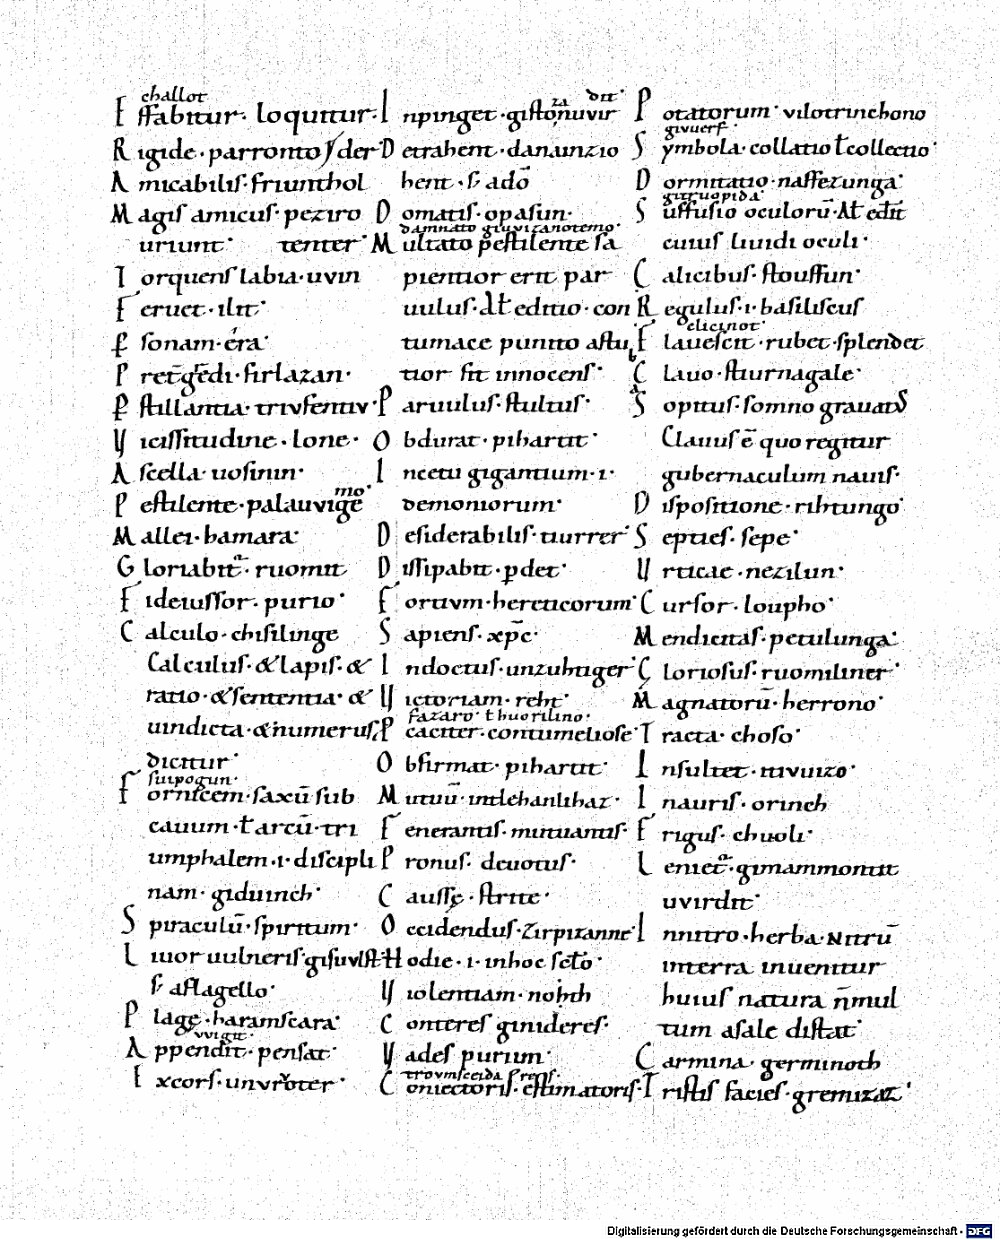 challot
Effabitur· loquitur·
Rigide·parronto ł der
Amicabilis·friunthol
Magis amicus·peziro
uriunt· tenter·
Torquens labia·uvin
Feruet·ilit·
sonam·era·
firlazan·
stillantia·triusentiu·
Vicissitudine·lone·
Ascella·uosinin·
mo·
Pestilente·palauvige
Mallei·hamara·
Gloriabit̄·ruomit
Fideiussor·purio·
Calculo·chisilinge
Calculus·&lapis·&
ratio·&sententia·&
uindicta·&numerus
dicitur·
suipogun·
Fornicem·saxū sub
cauum·ł arcū·tri
umphalem·i·discipli
nam·giduinch·
Spiraculū·spiritum·
Liuor uulneris·
aflagello·
Plage·haramscara·
vvigit·
Appendit·pensat·
Excors·
dit·
za
Inpinget·
Detrahent·danaunzio
hent·
Domatis·opasun·
damnato giuvizanotemo·
Multato pestilente sa
pientior erit par
uulus·Alt̄ editio·con
tumace punito astu
tior fit innocens·
Paruulus·stultus·
Obdurat·pihartit·
Incetu gigantium·i·
demoniorum·
Desiderabilis·tiurrer·
Dissipabit·pdet·
Fortium·hereticorum·
Sapiens·xp̄c·
Indoctus·unzuhtiger·
Victoriam·reht·
fazaro· thuorilino·
Paciter·contumeliose·
Obfirmat·pihartit·
Mutuū·intlehanlihaz·
Fenerantis·mutuantis·
Pronus·deuotus·
Causse·strite·
Occidendus·zirpizanne·
Hodie·i·inhoc sc̄lo·
Violentiam·
Conteres ginideres·
Vades purium·
Coniectoris·estimatoris·
Potatorum·vilotrinchono
Symbola·collatio ł collectio·
Dormitatio·naffezunga·
Suffusio oculorū·Alt̄ edīt
cuius liuidi oculi·
Calicibus·stouffun·
Regulus·i·basiliscus
clicinot·
Flauescit·rubet·splendet
Clauo·stiurnagale·
Sopitus·somno grauatus
Clauus ē quo regitur
gubernaculum nauis·
Dispositione·rihtungo·
Septies·sepe·
Vrticae·nezilun·
Cursor·loupho·
Mendicitas·petulunga·
Gloriosus·ruomiliner·
Magnatorū·herrono·
Tracta·choso·
Insultet·
Inauris·orinch
Frigus·chuoli·
Leniet·gimammontit
uvirdit·
Innitro·herba·Nitrū
interra inuenitur
huius natura n̄mul
tum asale distat·
Carmina·germinoth
Tristis facies·gremizaz·
Digitalisierung gefördert durch die Deutsche Forschungsgemeinschaft · DFG